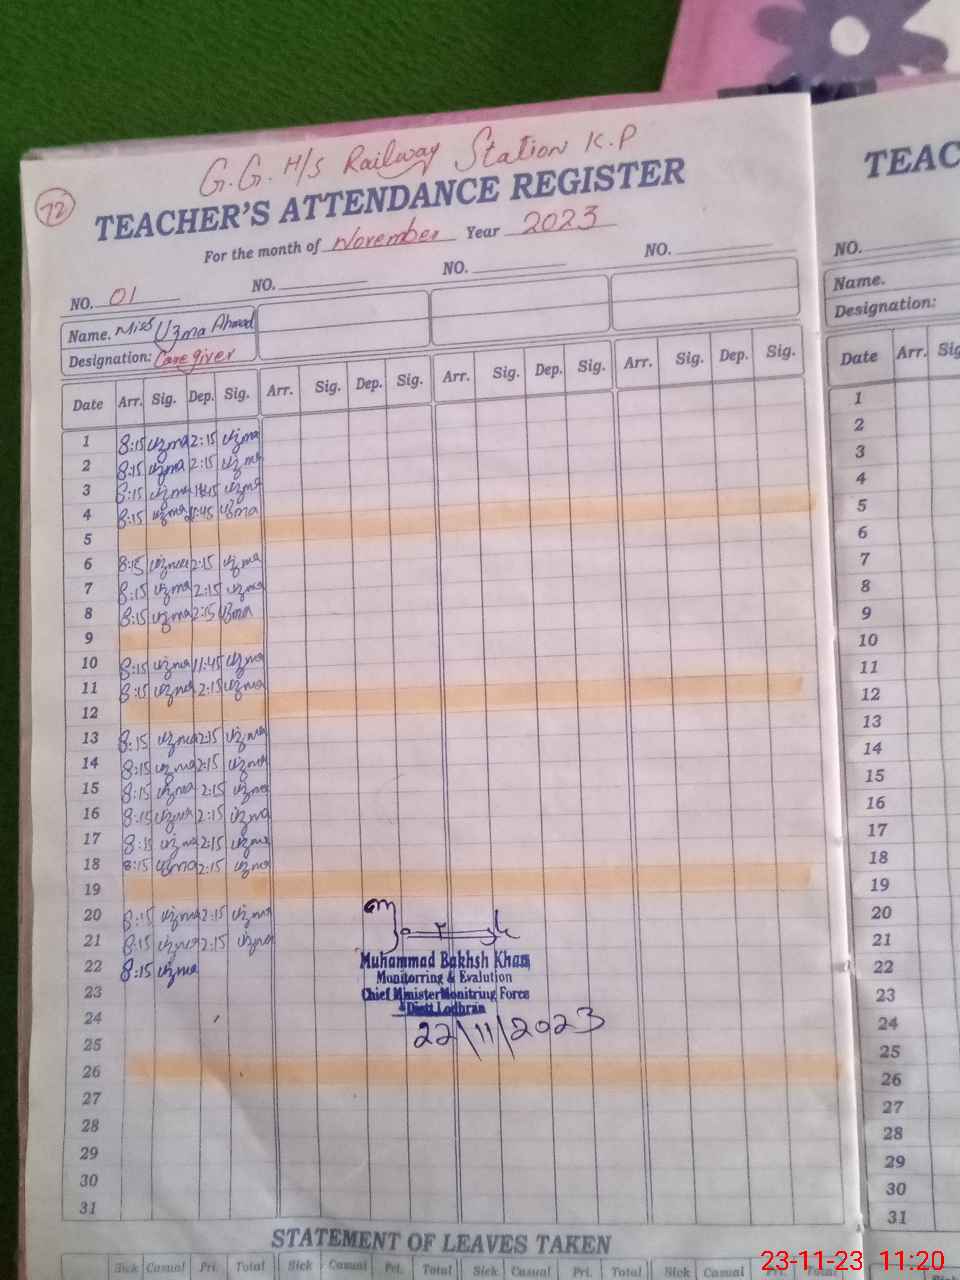 G.G.H/S Railway Station K.P
72
TEACHER'S ATTENDANCE REGISTER
For the month of November Year 2023
NO. 01 NO. NO. NO.
Name. Miss Uzma Ahmad
Designation: Care giver
Date Arr. Sig. Dep. Sig. Arr. Sig. Dep. Sig. Arr. Sig. Dep. Sig. Arr. Sig. Dep. Sig.
1 8:15 uzma 2:15 uzma
2 8:15 uzma 2:15 uzma
3 8:15 uzma uzma
4 8:15 uzma uzma
5
6 8:15 uzma 2:15 uzma
7 8:15 uzma 2:15 uzma
8 8:15 uzma 2:15 uzma
9
10 8:15 uzma 11:45 uzma
11 8:15 uzma 2:15 uzma
12
13 8:15 uzma 2:15 uzma
14 8:15 uzma 2:15 uzma
15 8:15 uzma 2:15 uzma
16 8:15 uzma 2:15 uzma
17 8:15 uzma 2:15 uzma
18 8:15 uzma 2:15 uzma
19
20 8:15 uzma 2:15 uzma
21 8:15 uzma 2:15 uzma
22 8:15 uzma
23
24
25
26
27
28
29
30
31
Muhammad Bakhsh Khan
Monitorring & Evalution
Chief Minister Monitring Force
Distt. Lodhran
22/11/2023
STATEMENT OF LEAVES TAKEN
Sick Casual Pri. Total Sick Casual Pri. Total Sick Casual Pri. Total Sick Casual Pri. Total
TEAC
NO.
Name.
Designation:
Date Arr. Sig
1
2
3
4
5
6
7
8
9
10
11
12
13
14
15
16
17
18
19
20
21
22
23
24
25
26
27
28
29
30
31
23-11-23 11:20